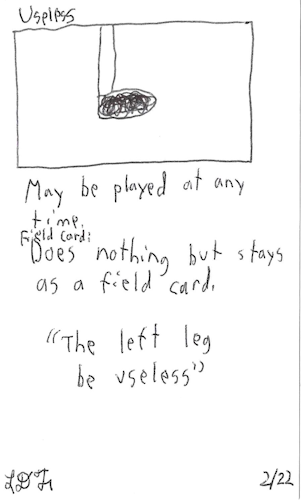 Useless
May be played at any
time.
Field Card:
Does nothing but stays
as a field card.
"The left leg
be useless"
2/22